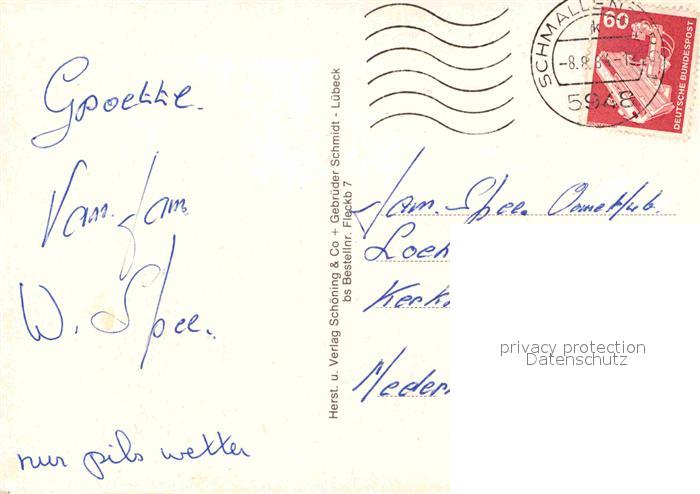 Groette.
Van. fam
W. Spee.
nur pils wetter
Herst. u. Verlag Schöning & Co + Gebrüder Schmidt - Lübeck
bs Bestellnr. Fleckb 7
SCHMALLEN
k
-8.8.8
5948
60
DEUTSCHE BUNDESPOST
fam. Spee.
Loen
Kerk
Neder
privacy protection
Datenschutz